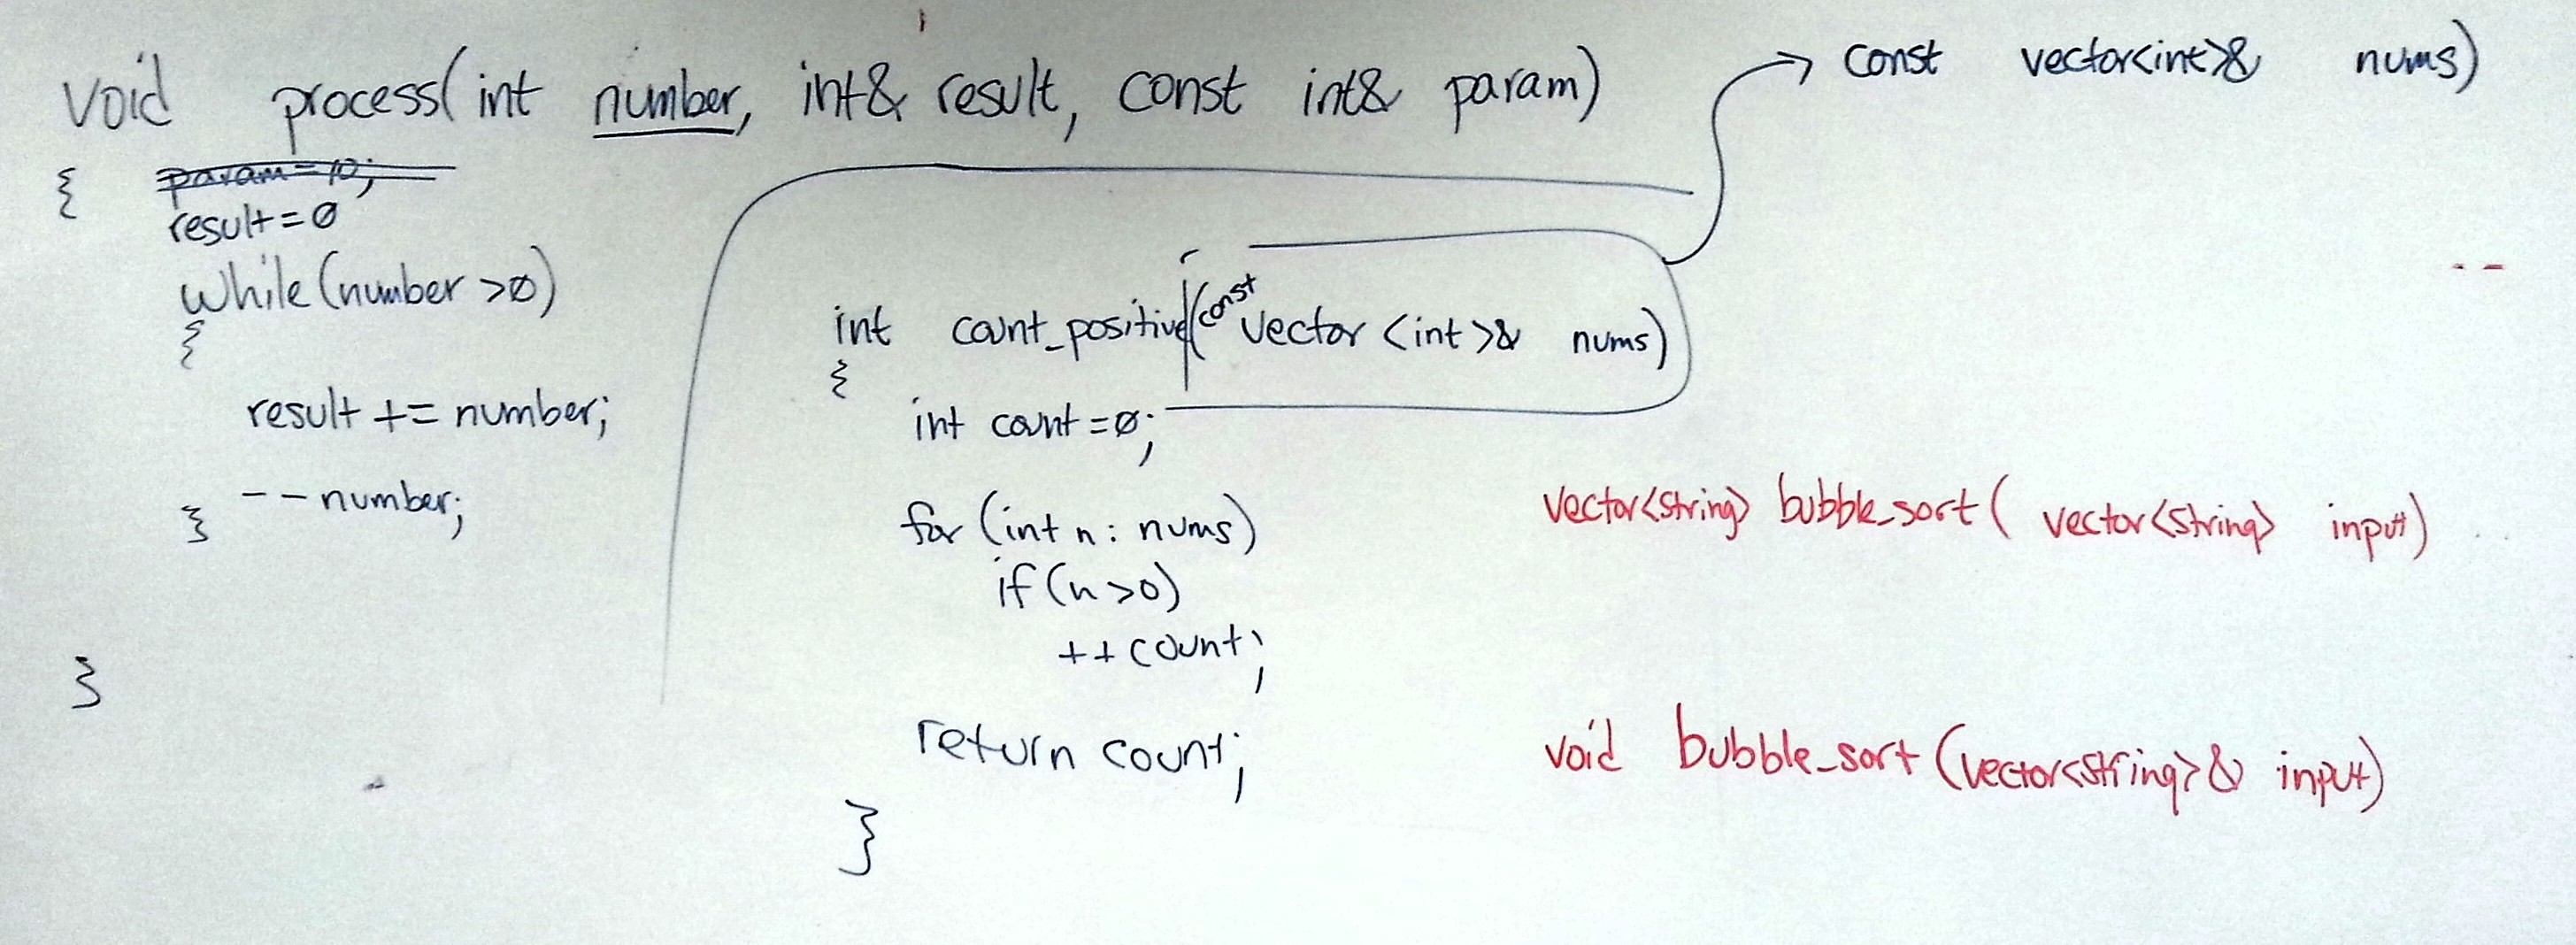 void process(int number, int& result, const int& param)
{ param=10;
result=0
while(number >0)
{
result += number;
--number;
}
}
const vector<int>& nums)
int count_positive(const vector <int>& nums)
{
int count=0;
for (int n: nums)
if (n>0)
++count;
return count;
}
vector<string> bubble_sort( vector<string> input)
void bubble_sort(vector<string>& input)